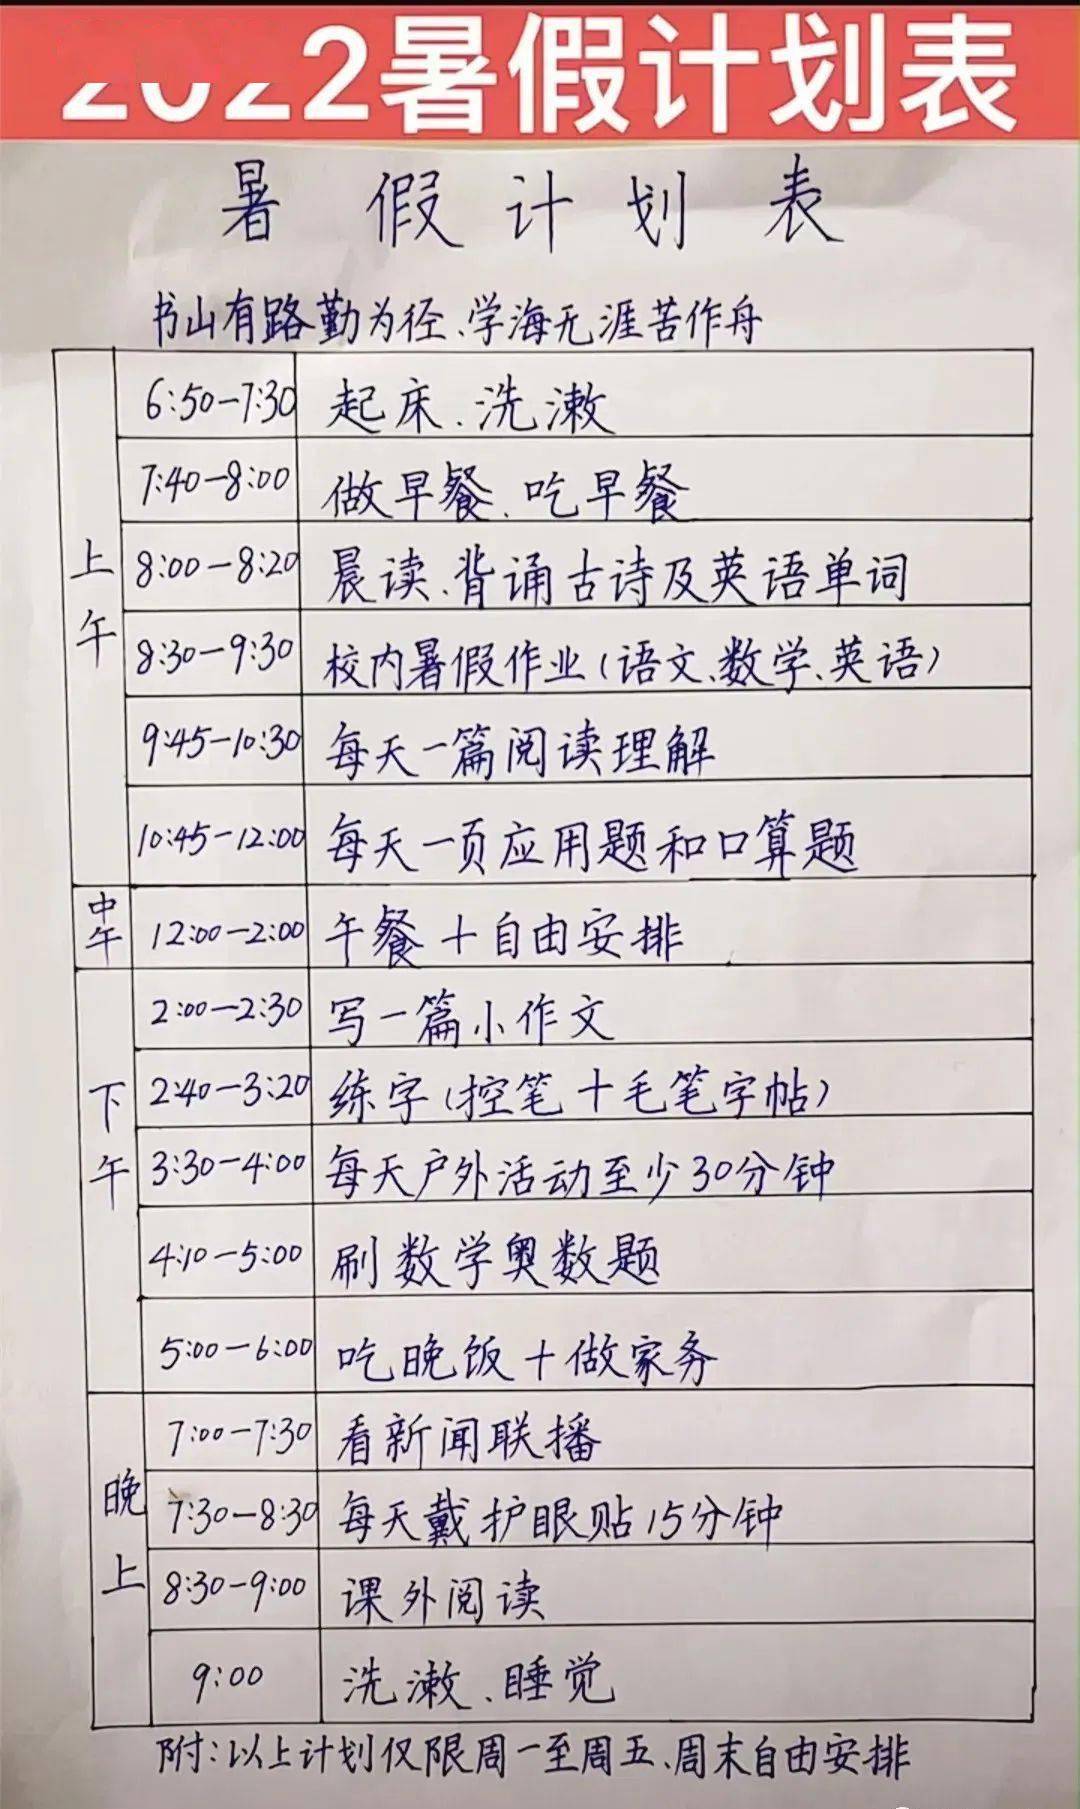 2022暑假计划表
暑假计划表
书山有路勤为径、学海无涯苦作舟
上午
6:50-7:30 起床、洗漱
7:40-8:00 做早餐、吃早餐
8:00-8:20 晨读、背诵古诗及英语单词
8:30-9:30 校内暑假作业(语文、数学、英语)
9:45-10:30 每天一篇阅读理解
10:45-12:00 每天一页应用题和口算题
中午
12:00-2:00 午餐+自由安排
下午
2:00-2:30 写一篇小作文
2:40-3:20 练字(控笔+毛笔字帖)
3:30-4:00 每天户外活动至少30分钟
4:10-5:00 刷数学奥数题
5:00-6:00 吃晚饭+做家务
晚上
7:00-7:30 看新闻联播
7:30-8:30 每天戴护眼贴15分钟
8:30-9:00 课外阅读
9:00 洗漱、睡觉
附:以上计划仅限周一至周五、周末自由安排